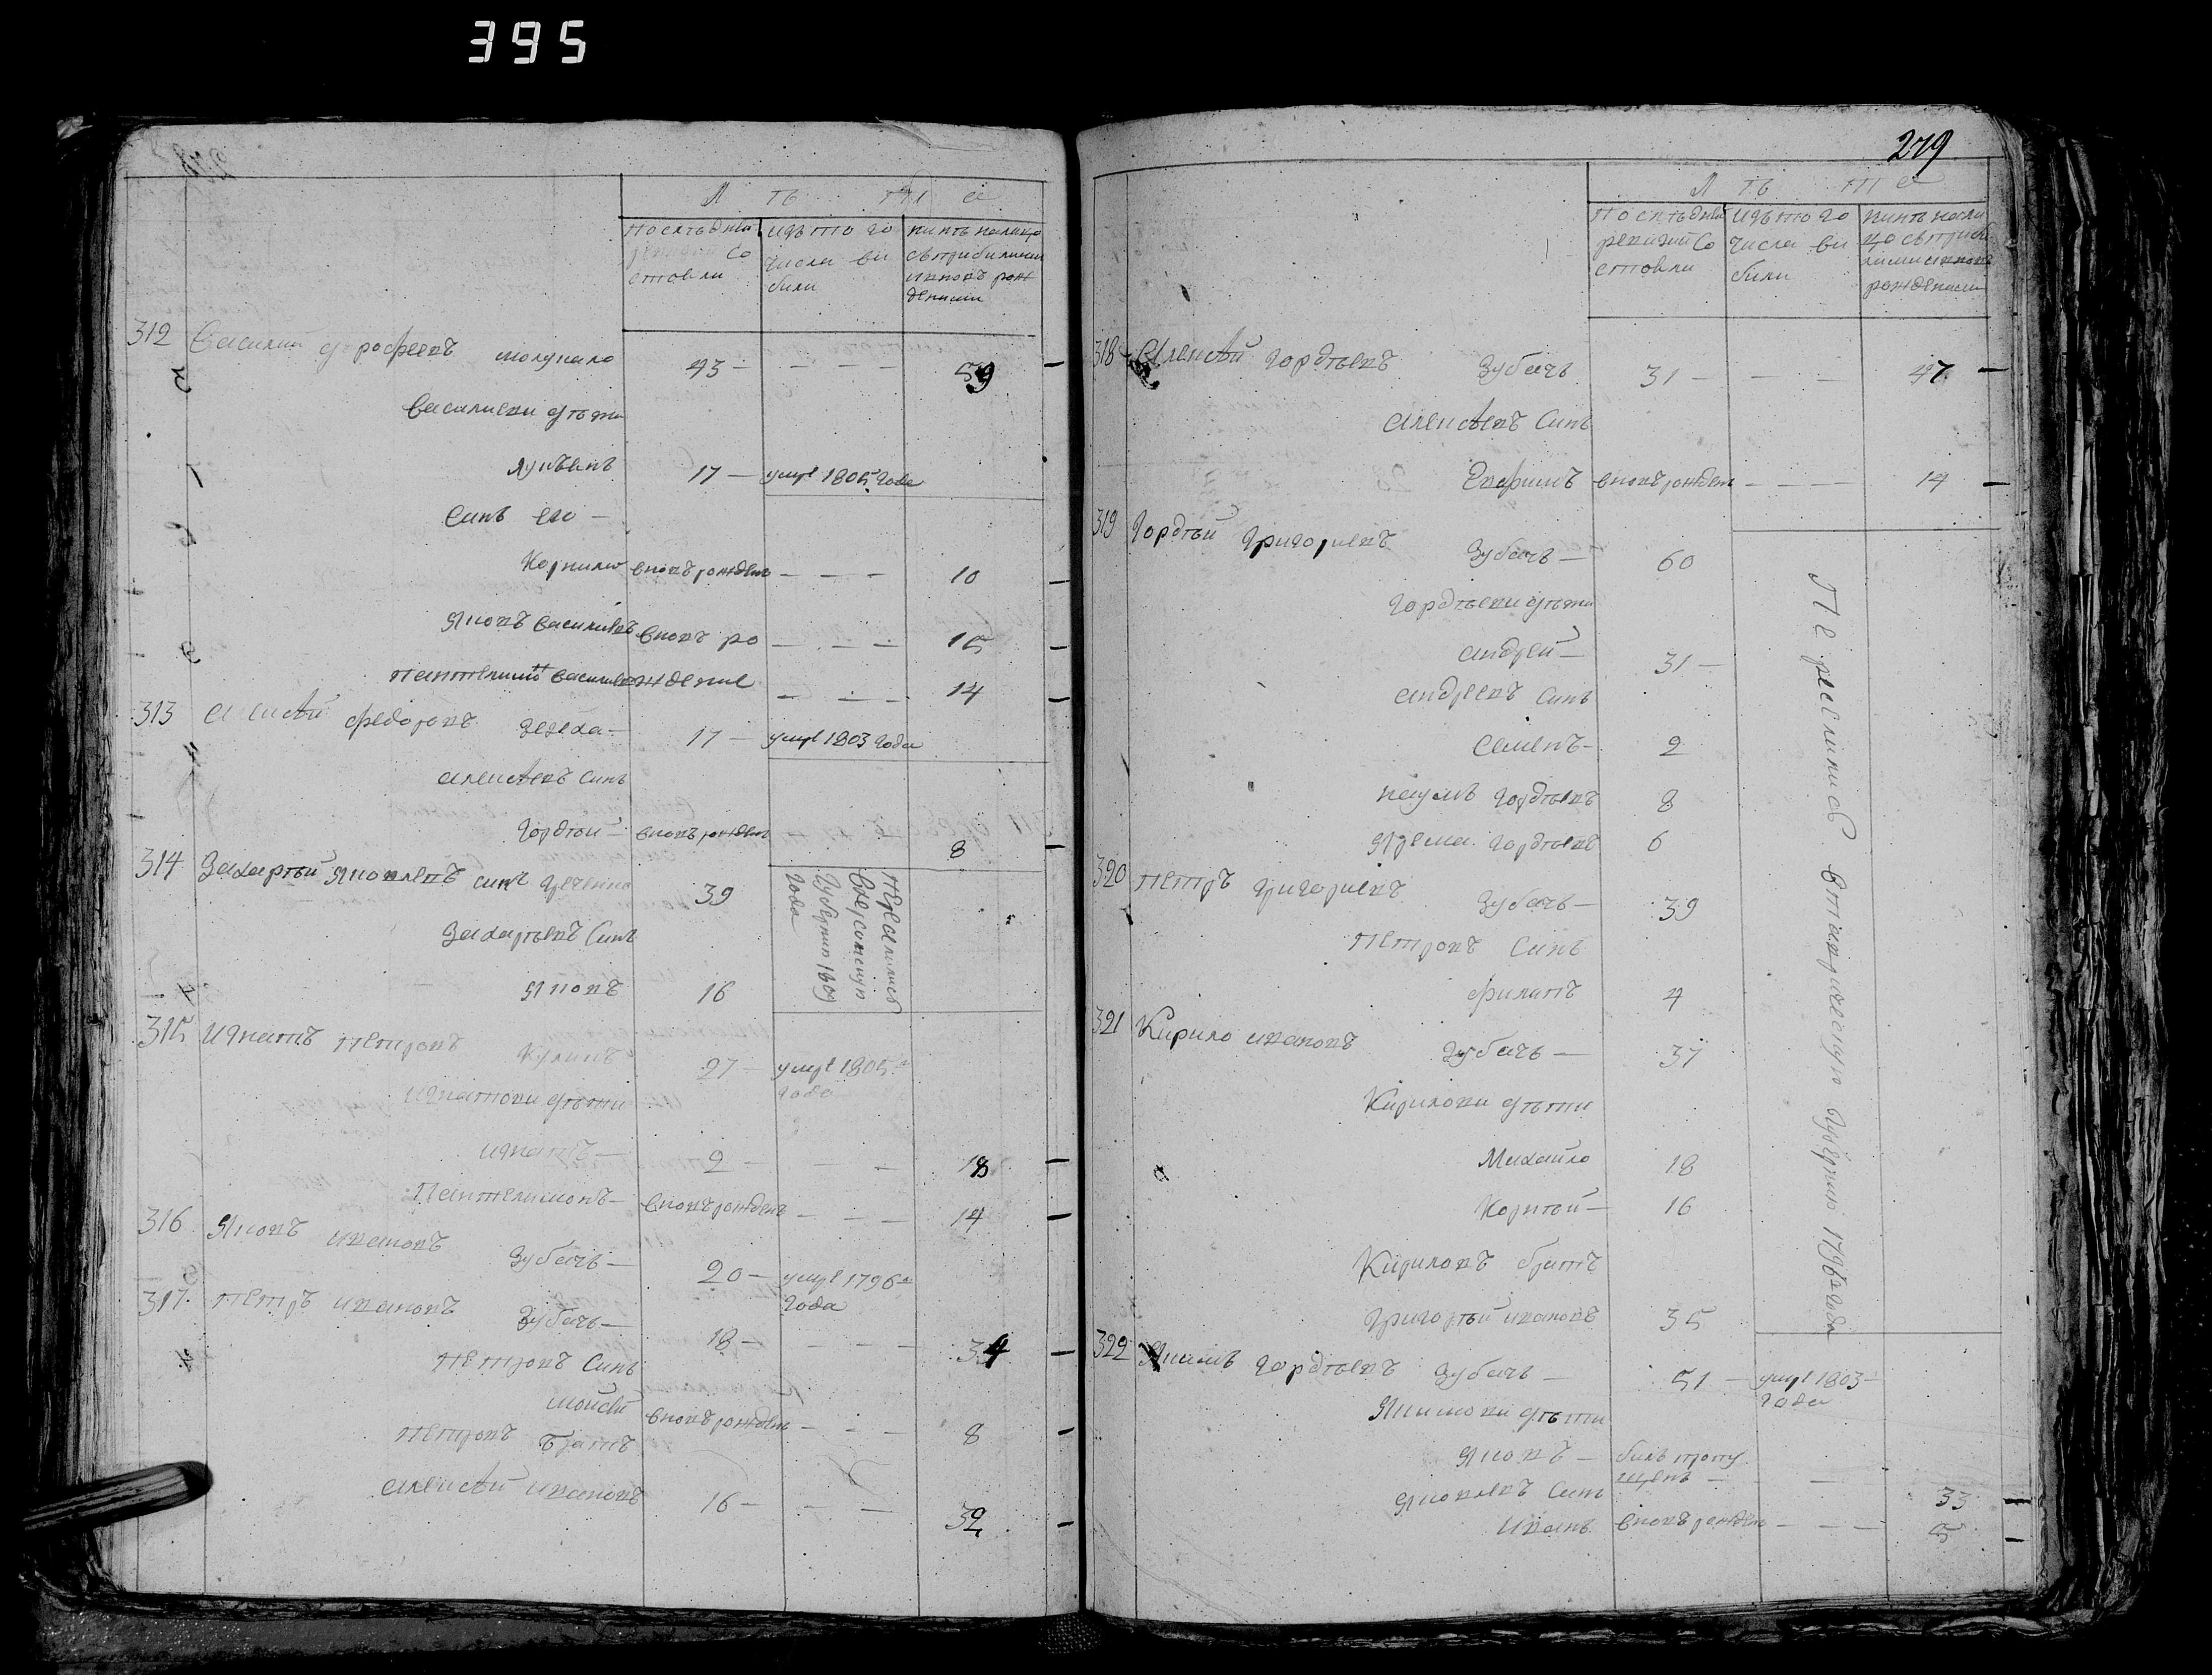 395
Л ѣ т а
последней ревизии состояли
изъ того числа выбыли
ныне налицо съ прибылими и вновь рожденими
312 Василий Дорофеевъ
43 — — — — 59
Василиеви дѣти
17 — умре 1805 года
Синъ его —
Корнило вновь рожден — — — 10
Яковъ Василиевъ вновь ро — — — 15
Пантелимонъ Василиев ждение — — — 14
313 Алексѣй Федоровъ
17 — умре 1803 года
Алексѣевъ синъ
Гордѣй — вновь рожден 8
314 Захарѣй Яковлевъ синъ
39
переселились в Херсонскую губернию 1809 года
Захарѣевъ синъ
Яковъ 16
315 Игнатъ Петровъ
27 — умре 1805 года
Игнатови дѣти
Игнатъ — 2 — — 18
Пантелимонъ — вновь рожден — — — 14
316 Яковъ Ивановъ
Зубачъ — 20 — умре 1796 года
317 Петръ Ивановъ
Зубачъ — 18 — — — — 34
Петровъ синъ
Мойсѣй вновь рожден — — — 8
Петровъ братъ
Алексѣй Ивановъ 16 — — — 32
279
Л ѣ т а
последней ревизии состояли
изъ того числа выбыли
ныне налицо съ прибылими и вновь рожденими
318 Алексѣй Гордѣевъ
Зубачъ 31 — — — 47
Алексѣевъ синъ
Ефримъ вновь рожден — — — 14
319 Гордѣй Григориевъ
Зубачъ — 60
Переселились в Таврическую губернию 1796 года
Гордѣеви дѣти
Андрей — 31 —
Андреевъ синъ
Семенъ — 2
Наумъ Гордѣевъ 8
Ярема Гордѣевъ 6
320 Петръ Григориевъ
Зубачъ — 39
Петровъ синъ
Филатъ 4
321 Кирило Ивановъ
Зубачъ — 37
Кирилови дѣти
Михайло 18
Корнѣй — 16
Кириловъ братъ
Григорѣй Ивановъ 35
322 Якимъ Гордѣевъ Зубачъ — 51 — умре 1803 года
Якимови дѣти
Яковъ — билъ пропущенъ — — 33
Яковлевъ синъ
Иванъ вновь рожден — — — 5